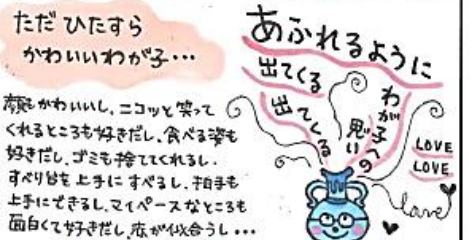 ただ ひたすら
かわいいわが子・・・
顔もかわいいし、ニコッと笑って
くれるところも好きだし、食べる姿も
好きだし、ゴミも捨ててくれるし、
すべり台も上手にすべるし、拍手も
上手にできるし、マイペースなところも
面白くて好きだし、衣が似合うし・・・
あふれるように
出てくる
出てくる
わが子への
思い
LOVE
LOVE
love